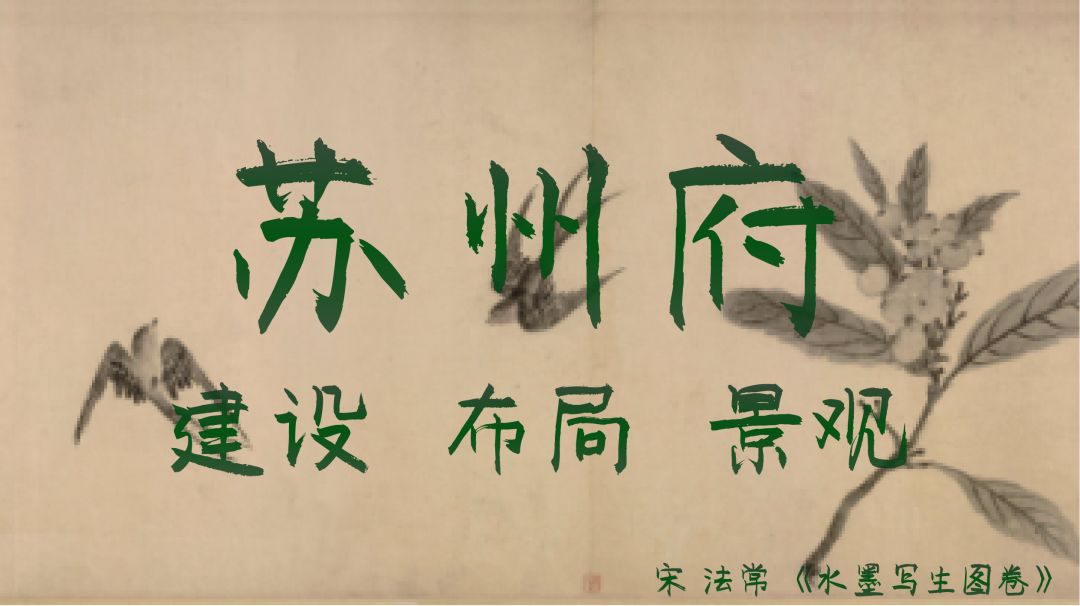 苏州府
建设 布局 景观
宋 法常 《水墨写生图卷》